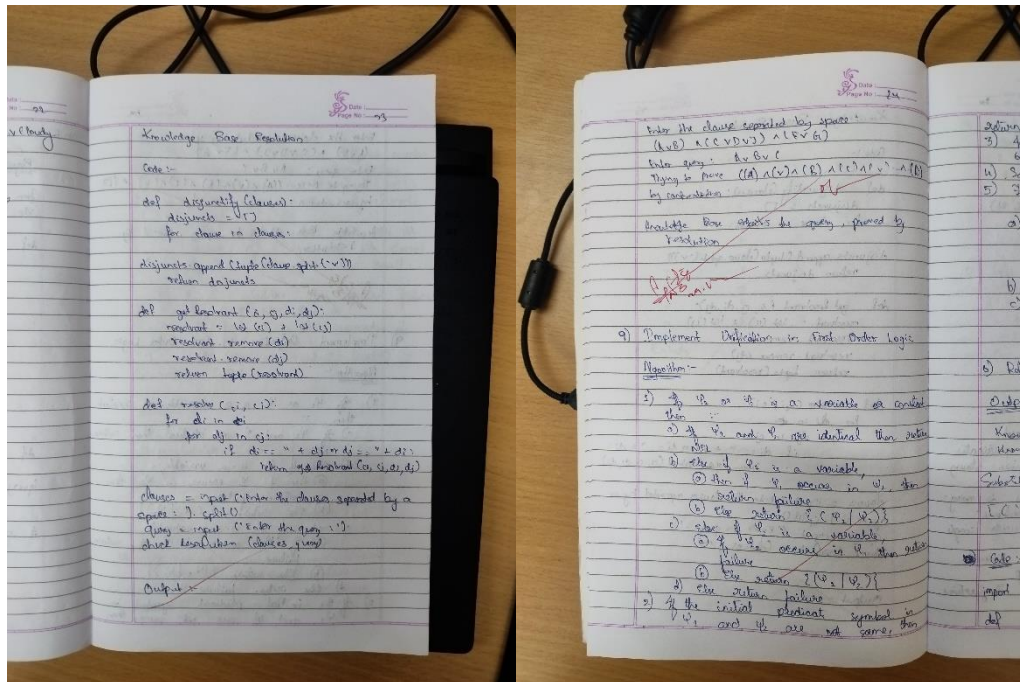 v Cloudy
Date
Page No 23
Knowledge Base Resolution
Code :-
def disjunctify (clauses):
disjuncts = []
for clause in clauses:
disjuncts.append (tuple (clause.split ('v')))
return disjuncts
def getResolvant (ci, cj, di, dj):
resolvant = list (ci) + list (cj)
resolvant. remove (di)
resolvant. remove (dj)
return tuple (resolvant)
def resolve (ci, cj):
for di in ci
for dj in cj:
if di == "~" + dj or dj == "~" + di:
return getResolvant (ci, cj, di, dj)
clauses = input ('Enter the clauses separated by a
space : '). split()
query = input ('Enter the query : ')
check Resolution (clauses, query)
Output :-
Date
Page No 24
Enter the clause seperated by space :
(A v B) ∧ (C v D v J) ∧ (E v G)
Enter query : A v B v C
Trying to prove
by contradiction :
Knowledge Base the query, proved by
resolution
9) Implement Unification in First Order Logic
Algorithm :-
1) If Ψ1 or Ψ2 is a variable or constant
then :-
a) If Ψ1 and Ψ2 are identical then return
NIL
b) Else if Ψ1 is a variable,
(a) then if Ψ1 occurs in Ψ2, then
return failure
(b) Else return
c) Else if Ψ2 is a variable,
(a) If Ψ2 occurs in Ψ1 then return
failure
(b) Else return {(Ψ1 | Ψ2)}
d) Else return failure
2) If the initial predicate symbol in
Ψ1 and Ψ2 are not same, then
return
3)
4)
5)
a)
b)
c)
6)
Code :
import
def